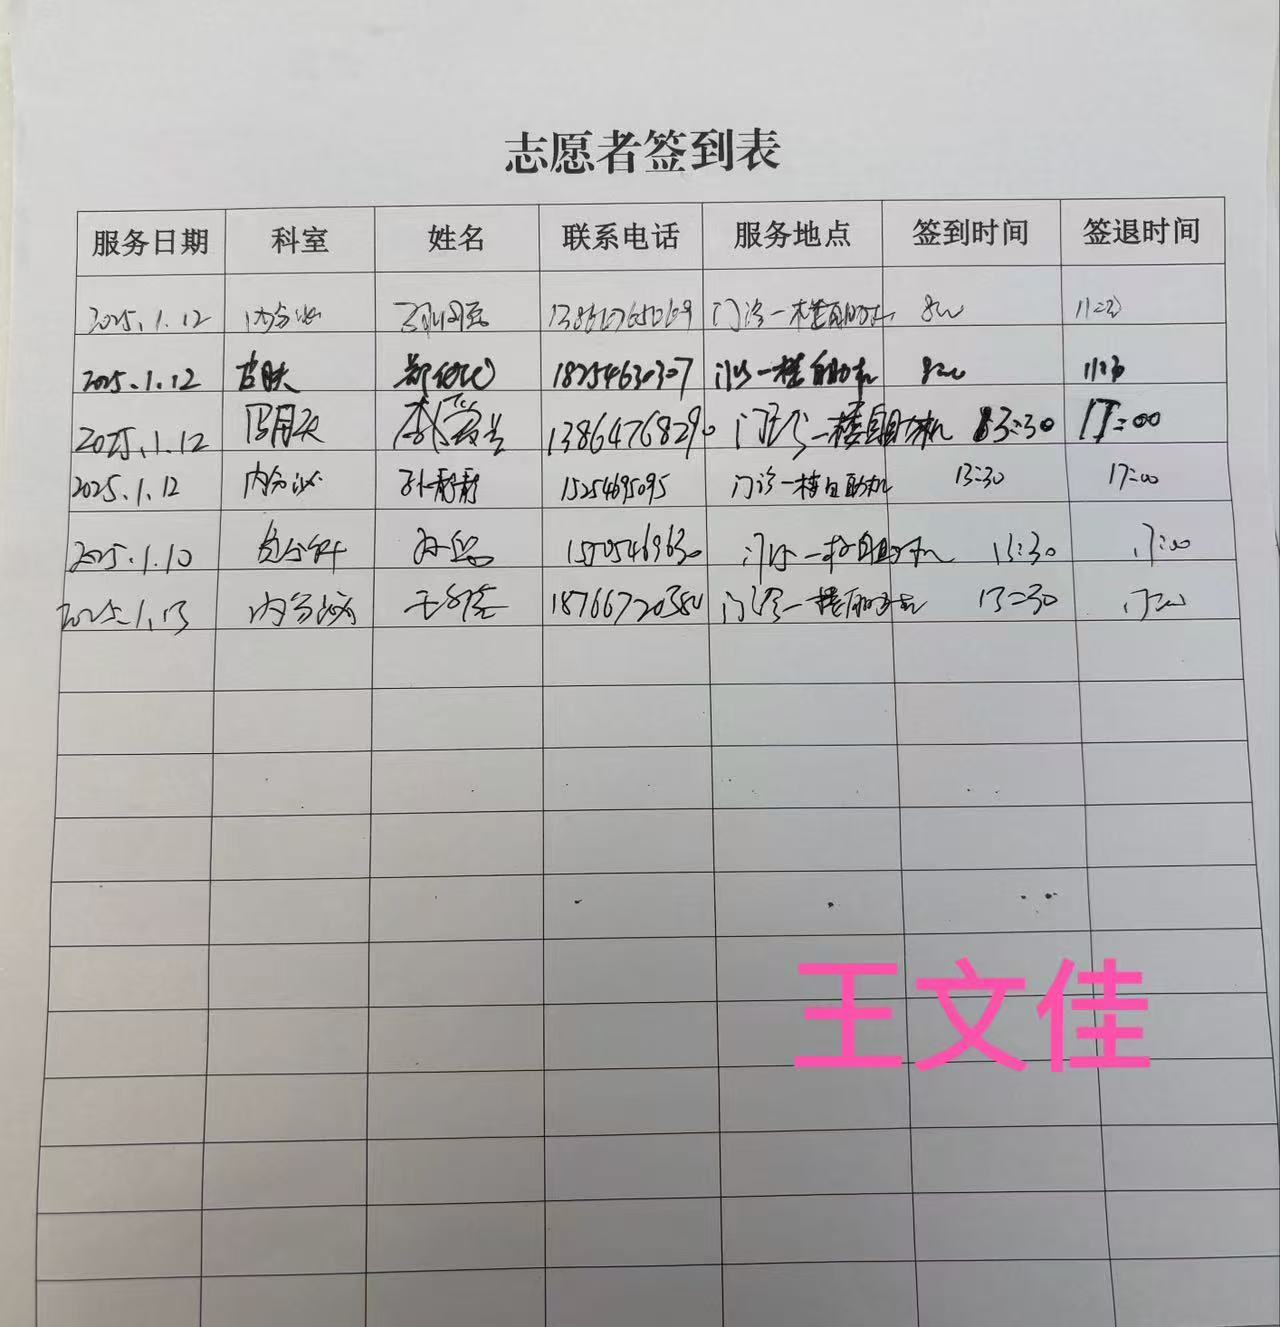 志愿者签到表
服务日期 科室 姓名 联系电话 服务地点 签到时间 签退时间
2025.1.12 内分泌 门诊一楼自助机
2025.1.12 皮肤 18254630307 门诊一楼自助机
2025.1.12 13864768290 门诊一楼自助机 13:30 17:00
2025.1.12 内分泌 孙静静 15254695095 门诊一楼自助机 13:30 17:00
2025.1.10 15505469630 门诊一楼自助机 13:30 17:00
2025.1.13 内分泌 18766720380 门诊一楼自助机 13:30 17:00
王文佳